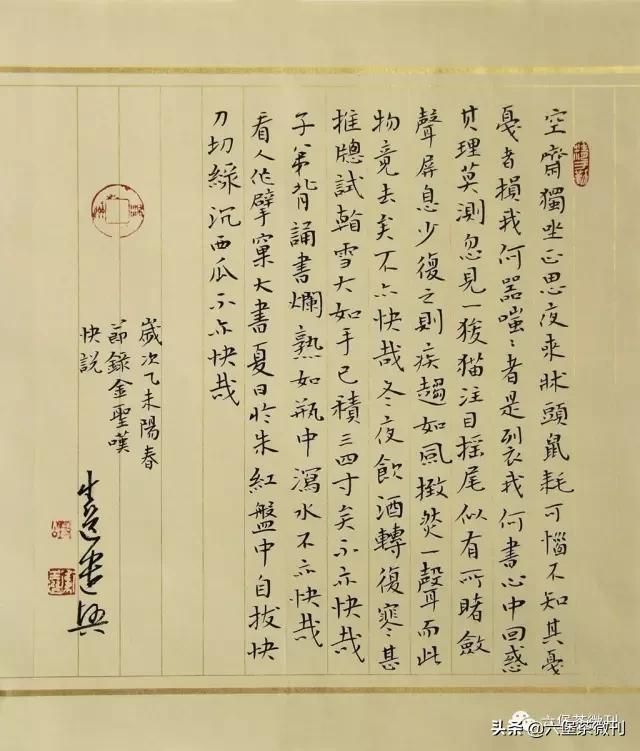 空齋獨坐正思夜來牀頭鼠耗可惱不知其戛
戛者損我何器嗤〻者是裂我何書心中回惑
其理莫測忽見一狻猫注目摇尾似有所睹斂
聲屏息少復之則疾趨如風撖然一聲而此
物竟去矣不亦快哉冬夜飲酒轉復寒甚
推牕試看雪大如手已積三四寸矣不亦快哉
子弟背誦書爛熟如瓶中瀉水不亦快哉
看人作擘窠大書夏日於朱紅盤中自拔快
刀切綠沉西瓜不亦快哉
歲次乙未陽春
節錄金聖嘆
快說
六堡茶微刊
头条 @六堡茶微刊